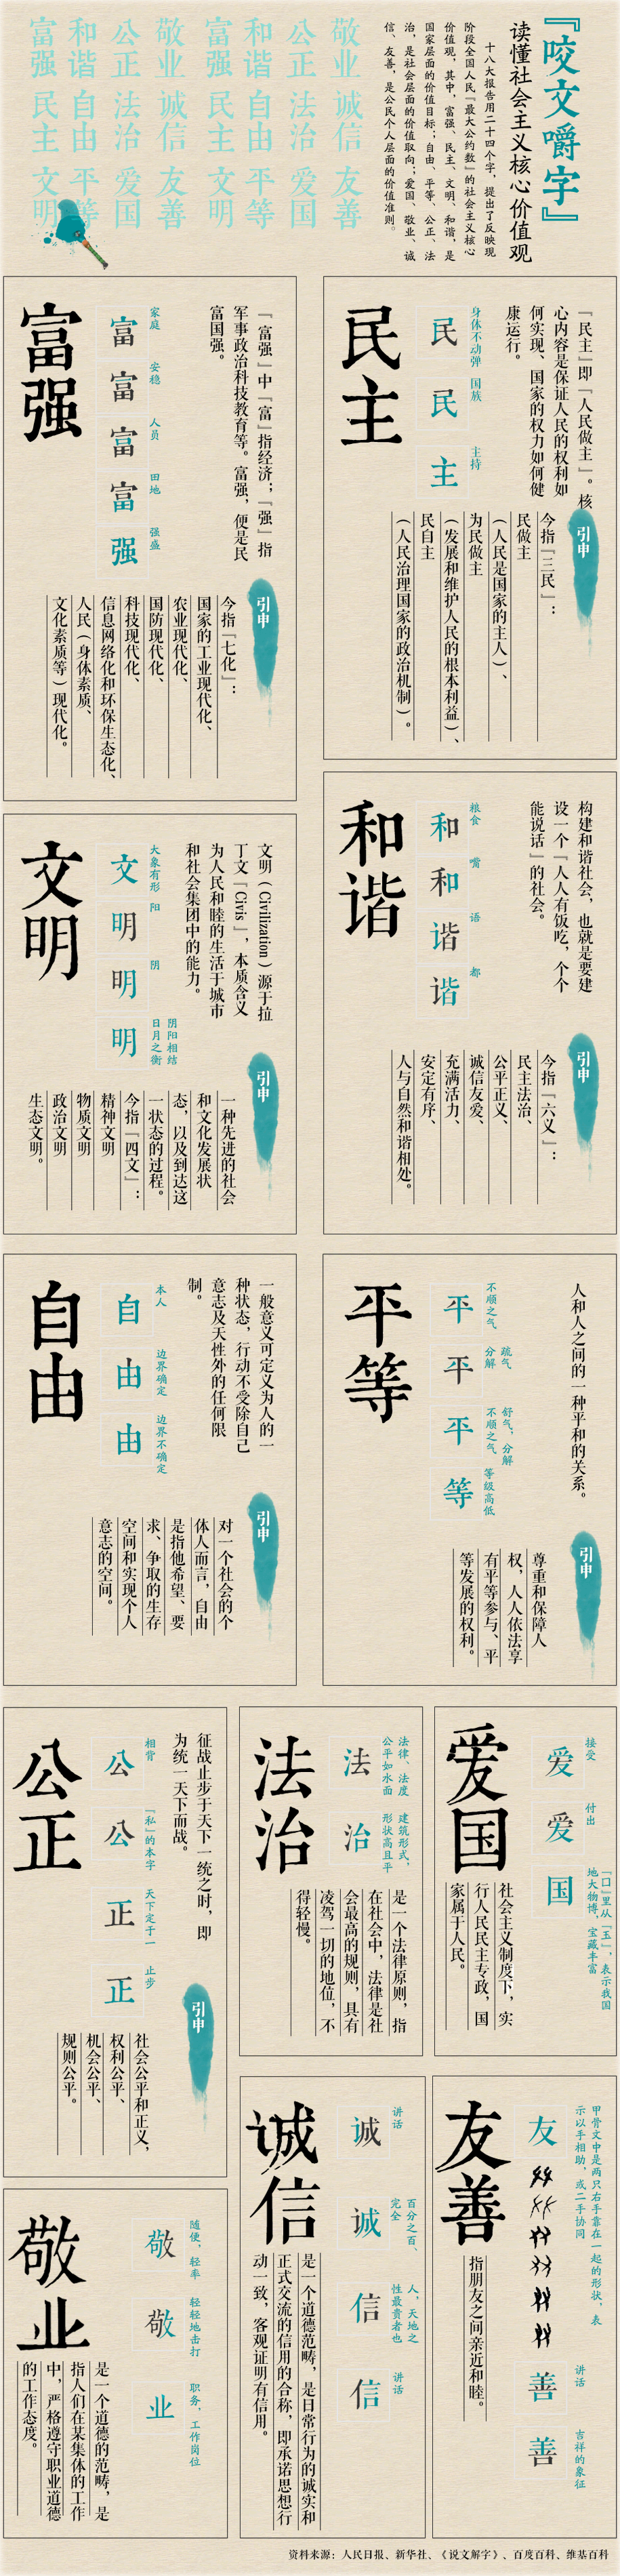 『咬文嚼字』
读懂社会主义核心价值观
十八大报告用二十四个字，提出了反映现
阶段全国人民『最大公约数』的社会主义核心
价值观，其中，富强、民主、文明、和谐，是
国家层面的价值目标；自由、平等、公正、法
治，是社会层面的价值取向；爱国、敬业、诚
信、友善，是公民个人层面的价值准则。
敬业 诚信 友善
公正 法治 爱国
和谐 自由 平等
富强 民主 文明
敬业 诚信 友善
公正 法治 爱国
和谐 自由 平等
富强 民主 文明
『民主』即『人民做主』。核
心内容是保证人民的权利如
何实现、国家的权力如何健
康运行。
身体不动弹 国族 主持
民 民 主
民主
引申
今指『三民』：
民做主
（人民是国家的主人）、
为民做主
（发展和维护人民的根本利益）、
民自主
（人民治理国家的政治机制）。
『富强』中『富』指经济；『强』指
军事政治科技教育等。富强，便是民
富国强。
家庭 安稳 人员 田地 强盛
富 富 富 富 强
富强
引申
今指『七化』：
国家的工业现代化、
农业现代化、
国防现代化、
科技现代化、
信息网络化和环保生态化、
人民（身体素质、
文化素质等）现代化。
构建和谐社会，也就是要建
设一个『人人有饭吃，个个
能说话』的社会。
粮食 嘴 语 都
和 和 谐 谐
和谐
引申
今指『六义』：
民主法治、
公平正义、
诚信友爱、
充满活力、
安定有序、
人与自然和谐相处。
文明（Civilization）源于拉
丁文『Civis』，本质含义
为人民和睦的生活于城市
和社会集团中的能力。
大象有形 阳 阴 阴阳相结
日月之衡
文 明 明 明
文明
引申
一种先进的社会
和文化发展状
态，以及到达这
一状态的过程。
今指『四文』：
精神文明
物质文明
政治文明
生态文明。
人和人之间的一种平和的关系。
不顺之气 疏气
分解 舒气，分解
不顺之气 等级高低
平 平 平 等
平等
引申
尊重和保障人
权，人人依法享
有平等参与、平
等发展的权利。
一般意义可定义为人的一
种状态，行动不受除自己
意志及天性外的任何限
制。
本人 边界确定 边界不确定
自 由 由
自由
引申
对一个社会的个
体人而言，自由
是指他希望、要
求、争取的生存
空间和实现个人
意志的空间。
接受 付出 『口』里从『玉』，表示我国
地大物博，宝藏丰富
爱 爱 国
爱国
社会主义制度下，实
行人民民主专政，国
家属于人民。
法律、法度
公平如水面 建筑形式，
形状高且平
法 治
法治
是一个法律原则，指
在社会中，法律是社
会最高的规则，具有
凌驾一切的地位，不
得轻慢。
征战止步于天下一统之时，即
为统一天下而战。
相背 『私』的本字 天下定于一 止步
公 公 正 正
公正
引申
社会公平和正义，
权利公平、
机会公平、
规则公平。
甲骨文中是两只右手靠在一起的形状，表
示以手相助，或二手协同
讲话 吉祥的象征
友 善 善
友善
指朋友之间亲近和睦。
讲话 百分之百、
完全 人，天地之
性最贵者也 讲话
诚 诚 信 信
诚信
是一个道德范畴，是日常行为的诚实和
正式交流的信用的合称，即承诺思想行
动一致，客观证明有信用。
随便，轻率 轻轻地击打 职务，工作岗位
敬 敬 业
敬业
是一个道德的范畴，是
指人们在某集体的工作
中，严格遵守职业道德
的工作态度。
资料来源：人民日报、新华社、《说文解字》、百度百科、维基百科